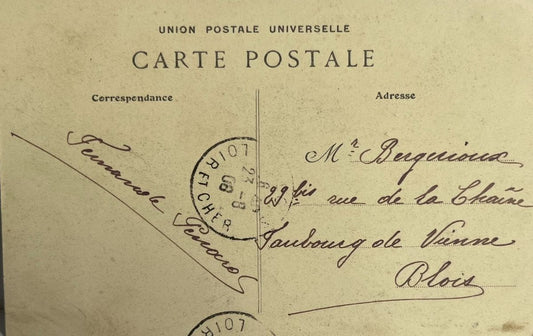 UNION POSTALE UNIVERSELLE
CARTE POSTALE
Correspondance
Adresse
Fernande
LOIR ET CHER
23 -8
08
Mr Bergerioux
29 bis rue de la Chaîne
Faubourg de Vienne
Blois
LOIR